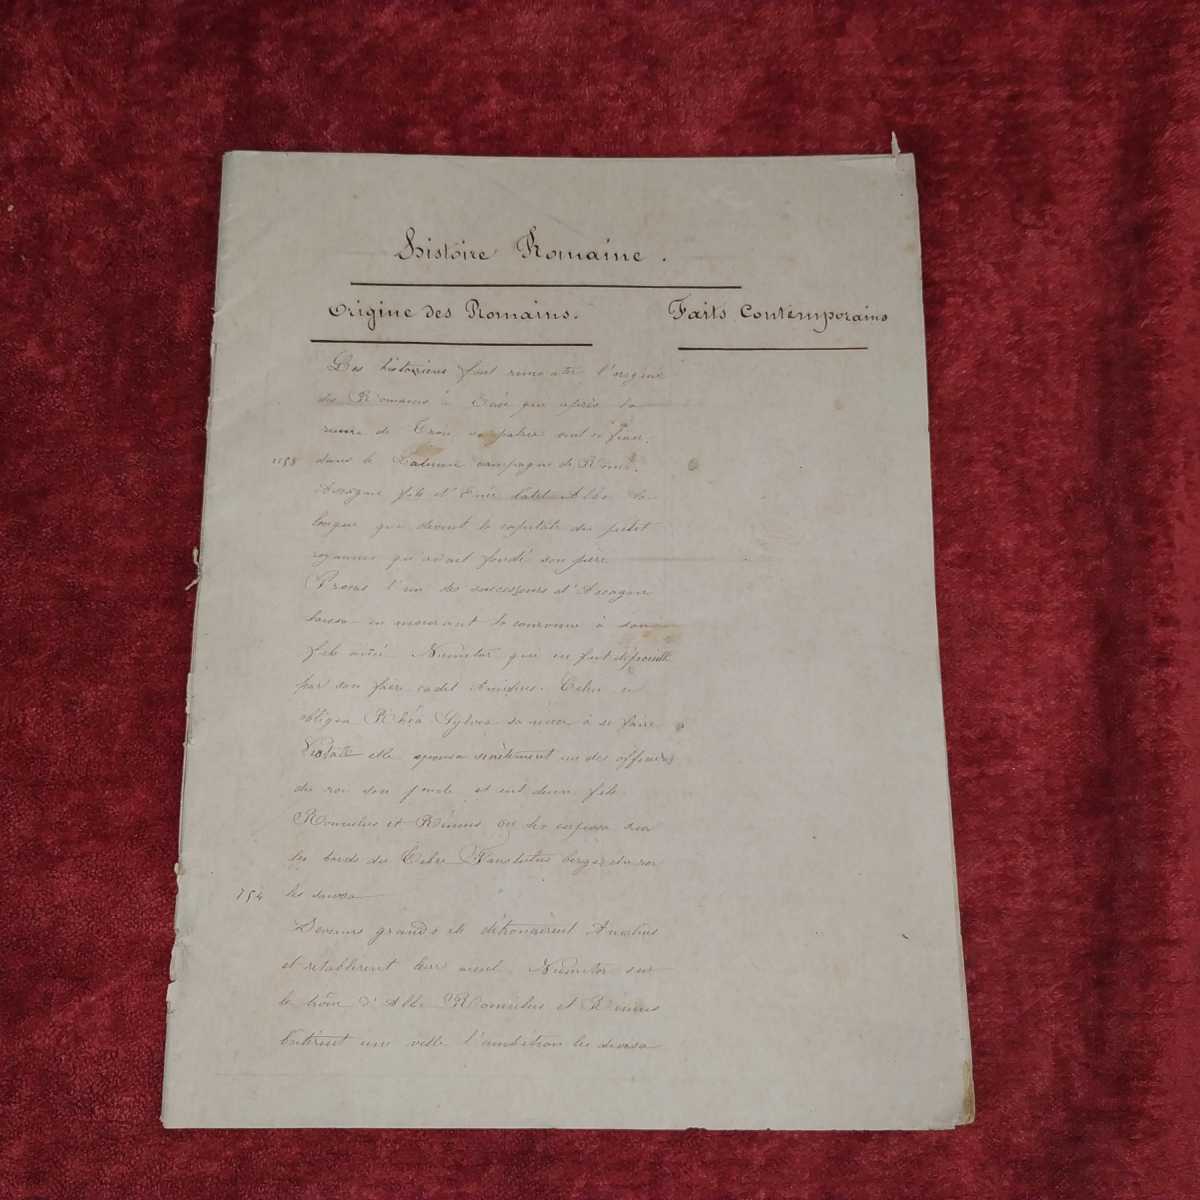 Histoire Romaine.
Origine des Romains.
Faits Contemporains
Les historiens font remonter l'origine
des Romains à Enée qui après la
ruine de Troie sa patrie vint se fixer
1158 dans le Latium campagne de Rome.
Ascagne fils d'Enée bâtit Albe la
longue qui devint la capitale du petit
royaume qu'avait fondé son père
Procas l'un des successeurs d'Ascagne
laissa en mourant la couronne à son
fils aîné Numitor qui en fut dépouillé
par son frère cadet Amulius. Celui ci
obligea Rhéa Sylvia sa nièce à se faire
Vestale elle épousa secrètement un des officiers
du roi son oncle et eut deux fils
Romulus et Rémus on les exposa sur
les bords du Tibre Faustulus berger du roi
754 les sauva
Devenus grands ils détronairent Amulius
et rétablirent leur aieul Numitor sur
le trône d'Albe Romulus et Rémus
batirent une ville l'ambition les divisa